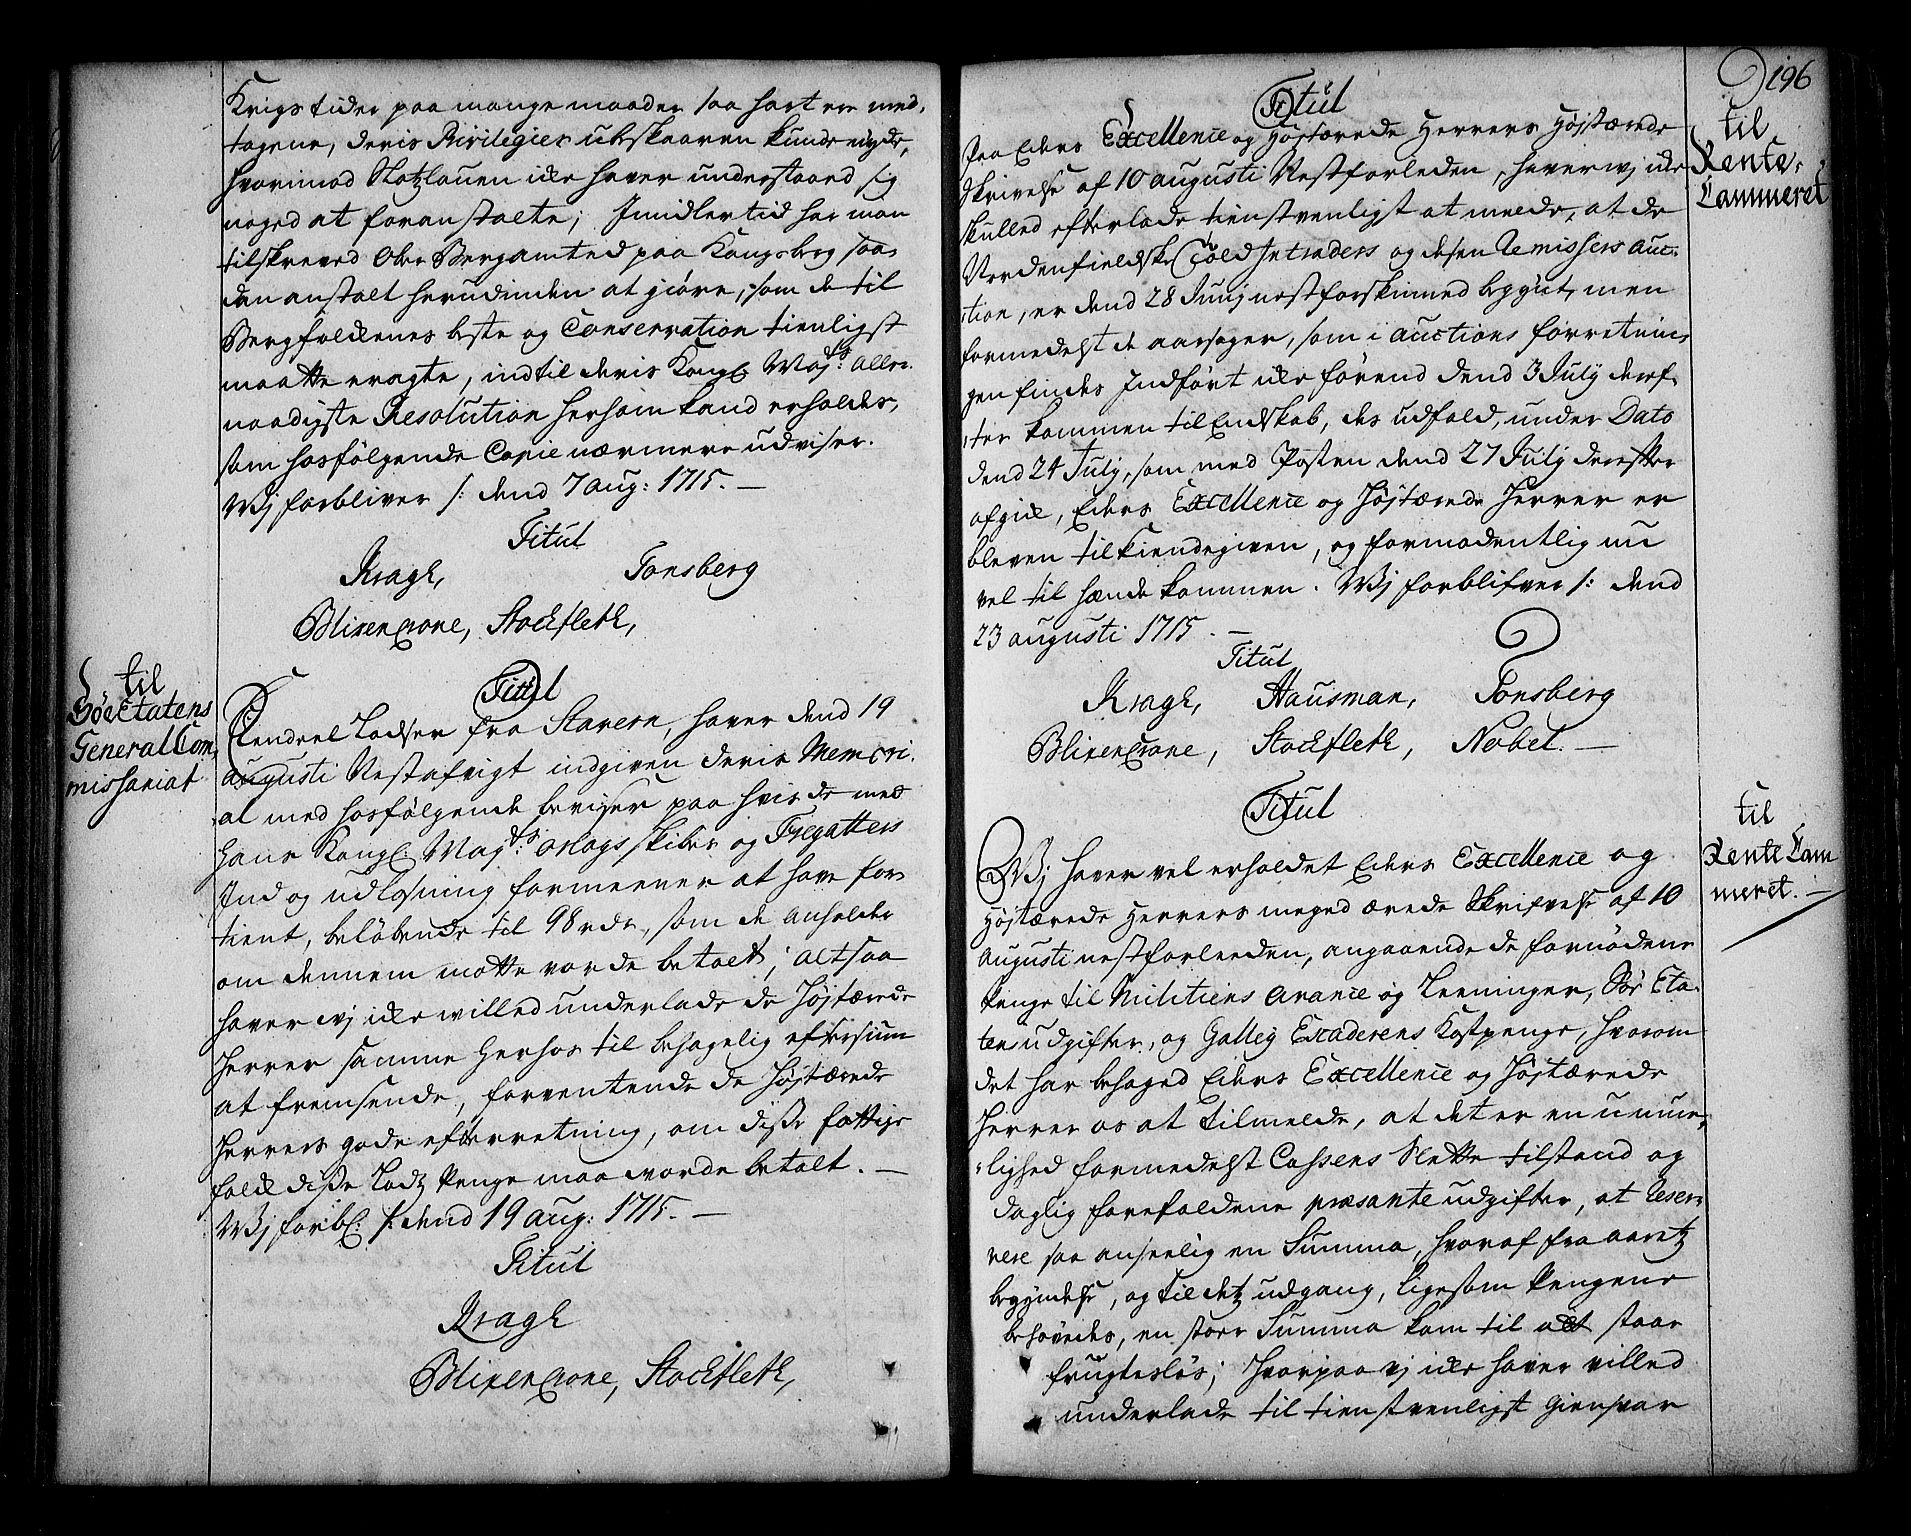 Krigs tider paa mange maader saa hart ere med-
tagene, deris Privilegier ubeskaaren kunde nyde,
hvorimod Slotzlouen icke haver understaaed sig
noged at foranstalte; Imidlertid har man
tilskreved Ober Bergamted paa Kongsberg saa-
dan anstalt herudinden at giøre, som de til
Bergfolckenes beste og Conservation tienligst
maatte eragte, indtil deris Kongl. Majts: aller-
naadigste Resolution hersom kand erholdes,
som hosfølgende Copie nærmere udviser.
Wj forbliver /: dend 7 aug: 1715. —
Titul
Kragh, Tonsberg
Blixencrone, Stockfleth,
til
SöeEtatens
General Com-
missariat
Titul
Lendeel Lodser fra Stavern, haver dend 19
augusti Nestafvigt indgiven deris Memori-
al med hosfølgende beviser paa hvis de med
hans Kongl. Majts: orlogs skiber og Fregatters
Ind og udlosning formeener at have for-
tient, beløbende til 98 rdr., som de anholder
om dennem motte vorde betalt; altsaa
haver wj icke willed underlade de Højtærede
Herrer samme herhos til behagelig eftersiun
at fremsende, forventende de Højtærede
Herrers gode efterretning, om disse fattige
folck disse Lodz Penge maa vorde betalt. —
Wj forbl: /: dend 19 aug: 1715. —
Titul
Kragh
Blixencrone, Stockfleth,
196
til
Rente-
Cammeret
Titul
Paa Eders Excellence og Højtærede Herrers Højtærede
Skrivelse af 10 augusti Nestforleden, haver wj icke
skulled efterlade tienstvenligst at melde, at de
Nordenfieldske Told Intraders og desen Remissers auc-
tion, er dend 28 Junij nestforskinned begynt, men
formedelst de aarsager, som i auctions forretnin-
gen findes Indført icke førend dend 3 July deref-
ter kommen til Endskab, des udfald, under Dato
dend 24 July, som med Posten dend 27 July derefter
afgick, Eders Excellence og Højtærede Herrer er
bleven tilkiendegiven, og formodentlig nu
vel til hænde kommen. Wj forblifver /: dend
23 augusti 1715. —
Titul
Kragh, Hausman, Tonsberg
Blixencrone, Stockfleth, Nobel. —
til
Rente Cam
meret. —
Titul
Wj haver vel erholdet Eders Excellence og
Højtærede Herrers meged ærede Skrifvelse af 10
augusti nestforleeden, angaaende de fornødene
Penge til Militiens avance og Leeninger, Søe Eta-
ten udgifter, og Galley Escaderens Kostpenge, hvorom
det har behaged Eders Excellence og Højtærede
Herrer os at tilmelde, at det er en umue-
lighed formedelst Cassens Slette tilstand og
daglig forefaldene præsante udgifter, at Reser-
vere saa anseelig en Summa, hvoraf fra aaretz
begyndelse, og til detz udgang, ligesom Pengene
behøvedes, en stor Summa kom til at staae
frugtesløs; hvorpaa vj icke haver villed
underlade til tienstvenligst Giensvar